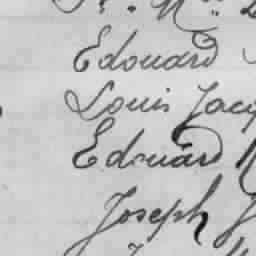 Edouard
Louis Jacq
Edouard
Joseph J